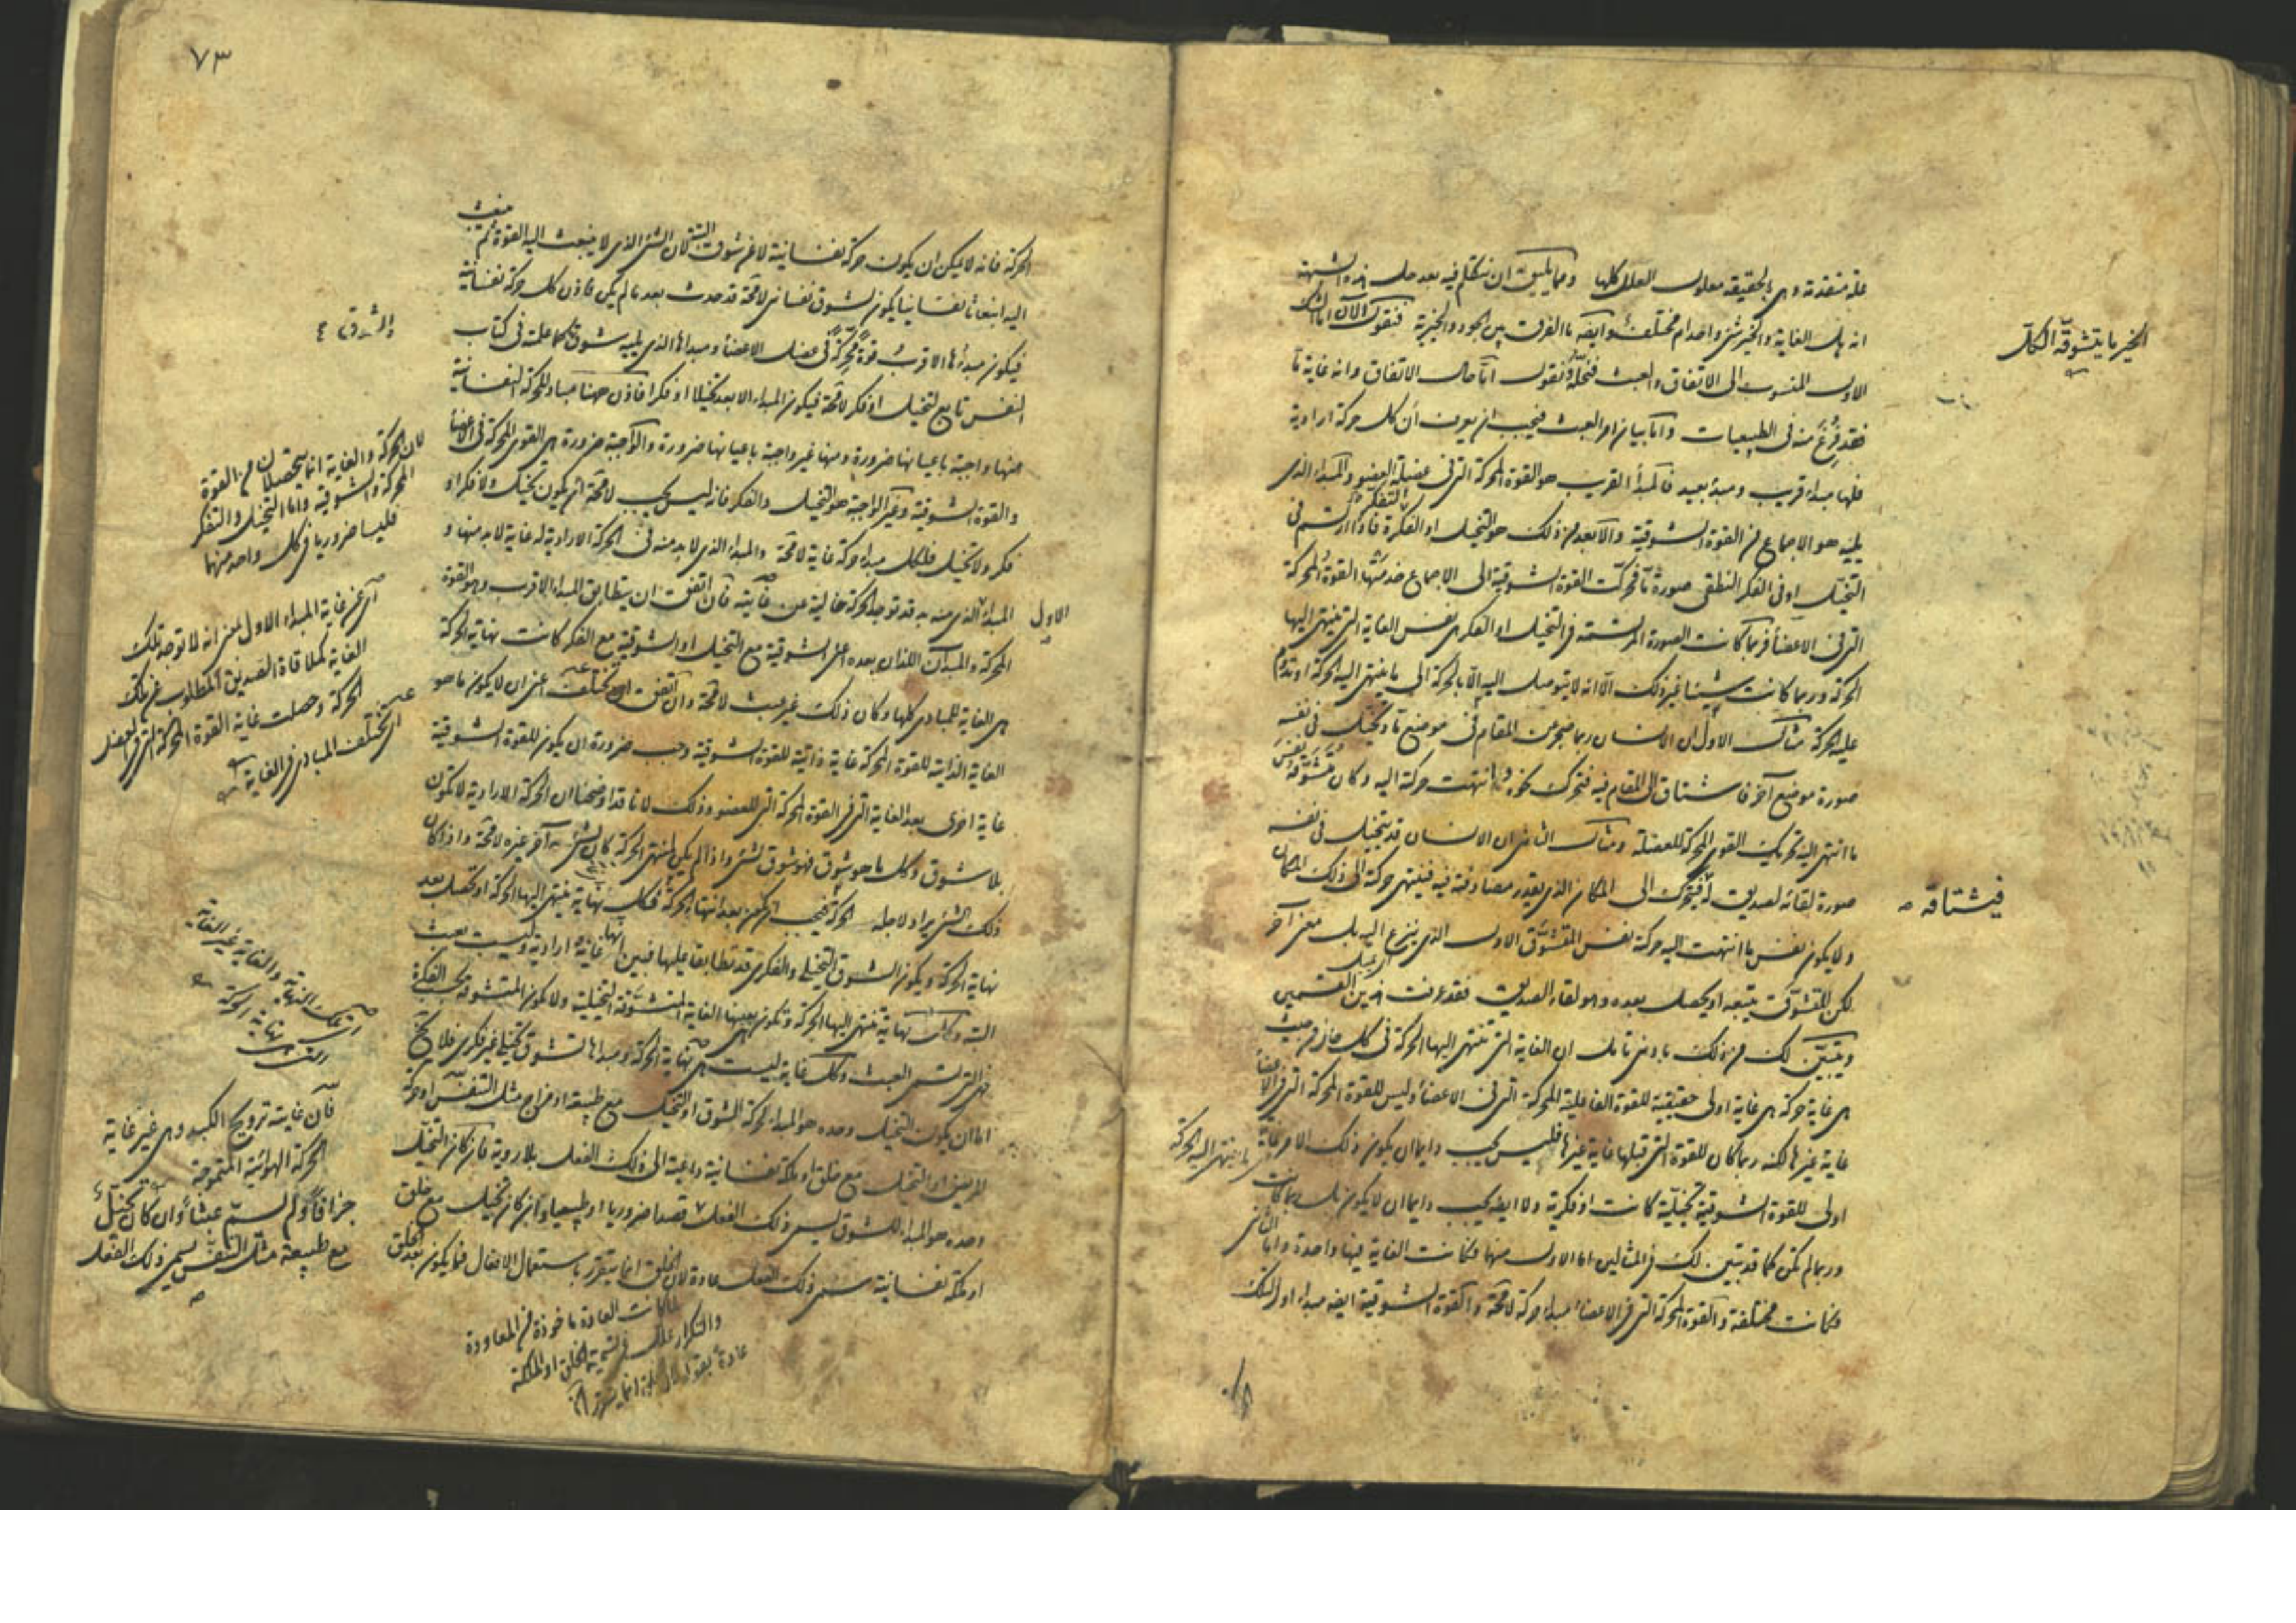 علة متقدمة وهى بالحقيقة معلول العلل كلها ومما يليق ان نتكلم فيه بعد حل هذه الشبهة
انه هل الغاية والخير شئ واحد ام مختلف وايضا ما الفرق بين الجود والخيرية فنقول الآن اما الشك
الاول المنسوب الى الاتفاق والعبث فنحله ونقول اما حال الاتفاق وانه غاية ما
فقد فرغ منه فى الطبيعيات واما بيان امر العبث فيجب ان يعرف ان كل حركة ارادية
فلها مبدأ قريب ومبدأ بعيد فالمبدأ القريب هو القوة المحركة التى فى عضلة العضو والمبدأ الذى
يليه هو الاجماع من القوة الشوقية والابعد من ذلك هو التخيل او الفكرة فاذا ارتسم فى
التخيل او فى الفكر النطقى صورة ما فحركت القوة الشوقية الى الاجماع خدمتها القوة المحركة
التى فى الاعضاء فربما كانت الصورة المرتسمة فى التخيل او الفكر هى نفس الغاية التى ينتهى اليها
الحركة وربما كانت شيئا غير ذلك الا انه لا يتوصل اليه الا بالحركة الى ما ينتهى اليه الحركة او تدوم
عليه الحركة مثال الاول ان الانسان ربما ضجر من المقام فى موضع ما وتخيل فى نفسه
صورة موضع آخر فاشتاق الى المقام فيه فتحرك نحوه وانتهت حركته اليه وكان متشوقه نفس
ما انتهى اليه تحريك القوى المحركة للعضلة ومثال الثانى ان الانسان قد يتخيل فى نفسه
صورة لقائه لصديق له فيتحرك الى المكان الذى يقدر مصادفته فيه فينتهى حركته الى ذلك المكان
ولا يكون نفس ما انتهت اليه حركته نفس المتشوق الاول الذى ينزع اليه بل معنى آخر
لكن المتشوق يتبعه او يحصل بعده وهو لقاء الصديق فقد عرفت هذين القسمين
وتبين لك من ذلك بادنى تامل ان الغاية التى تنتهى اليها الحركة فى كل حال من حيث
هى غاية حركة هى غاية اولى حقيقية للقوة الفاعلية المحركة التى فى الاعضاء وليس للقوة المحركة التى فى الاعضاء
غاية غيرها لكنه ربما كان للقوة التى قبلها غاية غيرها فليس يجب دايما ان يكون ذلك الامر غاية
اولى للقوة الشوقية تخيلية كانت او فكرية ولا ايضا يجب دايما ان لا يكون بل ربما كانت
وربما لم تكن كما قد تبين لك فى المثالين اما الاول منها فكانت الغاية فيها واحدة واما الثانى
فكانت مختلفة والقوة المحركة التى فى الاعضاء مبدأ حركة لا محالة والقوة الشوقية ايضا مبدأ اول لتلك
الخير ما يتشوقه الكل
فيشتاقه
ما ينتهى اليه الحركة
٧٣
الحركة فانه لا يمكن ان يكون حركة نفسانية لا عن شوق البتة لان الشئ الذى لا ينبعث اليه القوة ثم ينبعث
اليه انبعاثا نفسانيا يكون لشوق نفسانى لا محالة قد حدث بعد ما لم يكن فاذن كل حركة نفسانية
فيكون مبدأها الاقرب قوة محركة فى عضل الاعضاء ومبدأها الذى يليه شوق كما علمته فى كتاب
النفس تابع لتخيل او فكر لا محالة فيكون المبدأ الابعد تخيلا او فكرا فاذن هنا مباد للحركة النفسانية
منها واجبة باعيانها ضرورة ومنها غير واجبة باعيانها ضرورة والواجبة ضرورة هى القوى المحركة فى الاعضاء
والقوة الشوقية وغير الواجبة هو التخيل والفكر فانه ليس يجب لا محالة ان يكون تخيل ولا فكر او
فكر ولا تخيل فلكل مبدأ حركة غاية لا محالة والمبدأ الذى لا بد منه فى الحركة الارادية له غاية لا بد منها و
المبدأ الذى منه بد قد توجد الحركة خالية عن غايته فان اتفق ان يتطابق المبدأ الاقرب وهو القوة
المحركة والمبدآن اللذان بعده اعنى الشوقية مع التخيل او الشوقية مع الفكر كانت نهاية الحركة
هى الغاية للمبادى كلها وكان ذلك غير عبث لا محالة وان اتفق ان تختلف اعنى ان لا يكون ما هو
الغاية الذاتية للقوة المحركة غاية ذاتية للقوة الشوقية وجب ضرورة ان يكون للقوة الشوقية
غاية اخرى بعد الغاية التى فى القوة المحركة التى للعضو وذلك لانا قد اوضحنا ان الحركة الارادية لا تكون
بلا شوق وكل ما هو شوق فهو شوق لشئ واذا لم يكن لمنتهى الحركة كان لشئ آخر غيره لا محالة واذا كان
ذلك الشئ يراد لاجله الحركة فيجب ان يكون بعد انتهاء الحركة فكل نهاية ينتهى اليها الحركة او تحصل بعد
نهاية الحركة ويكون الشوق التخيلى والفكرى قد تطابقا عليها فبين انها غاية ارادية وليست بعبث
البتة وكل نهاية تنتهى اليها الحركة وتكون بعينها الغاية المتشوقة التخيلية ولا يكون المتشوقة بحسب الفكرة
فهى التى تسمى العبث وكل غاية ليست هى نهاية الحركة ومبدأها تشوق تخيلى غير فكرى فلا يخلو
اما ان يكون التخيل وحده هو المبدأ لحركة الشوق او التخيل مع طبيعة او مزاج مثل التنفس او حركة
المريض او التخيل مع خلق او ملكة نفسانية داعية الى ذلك الفعل بلا روية فان كان التخيل
وحده هو المبدأ للشوق يسمى ذلك الفعل قصدا ضروريا او طبيعيا وان كان تخيل مع خلق
او ملكة نفسانية سمى ذلك الفعل عادة لان الخلق انما يتقرر باستعمال الافعال فما يكون بعد الخلق
والشوق
الاول
لان الحركة والغاية انما يحصلان من القوة
المحركة والشوقية واما التخيل والتفكر
فليسا ضروريا فى كل واحد منهما
اى عن غاية المبدأ الاول بمعنى انه لا توجد تلك
الغاية كملاقاة الصديق المطلوب من تلك
الحركة وحصلت غاية القوة المحركة التى فى العضل
اى تختلف المبادى فى الغاية
فان غايته ترويح الكبد وهى غير غاية
الحركة الهوائية المتموجة
جزافا ولم يسم عبثا وان كان تخيل
مع طبيعة مثل التنفس يسمى ذلك الفعل
لما كانت العادة ماخوذة من المعاودة
والتكرار علل تسمية الخلق او الملكة